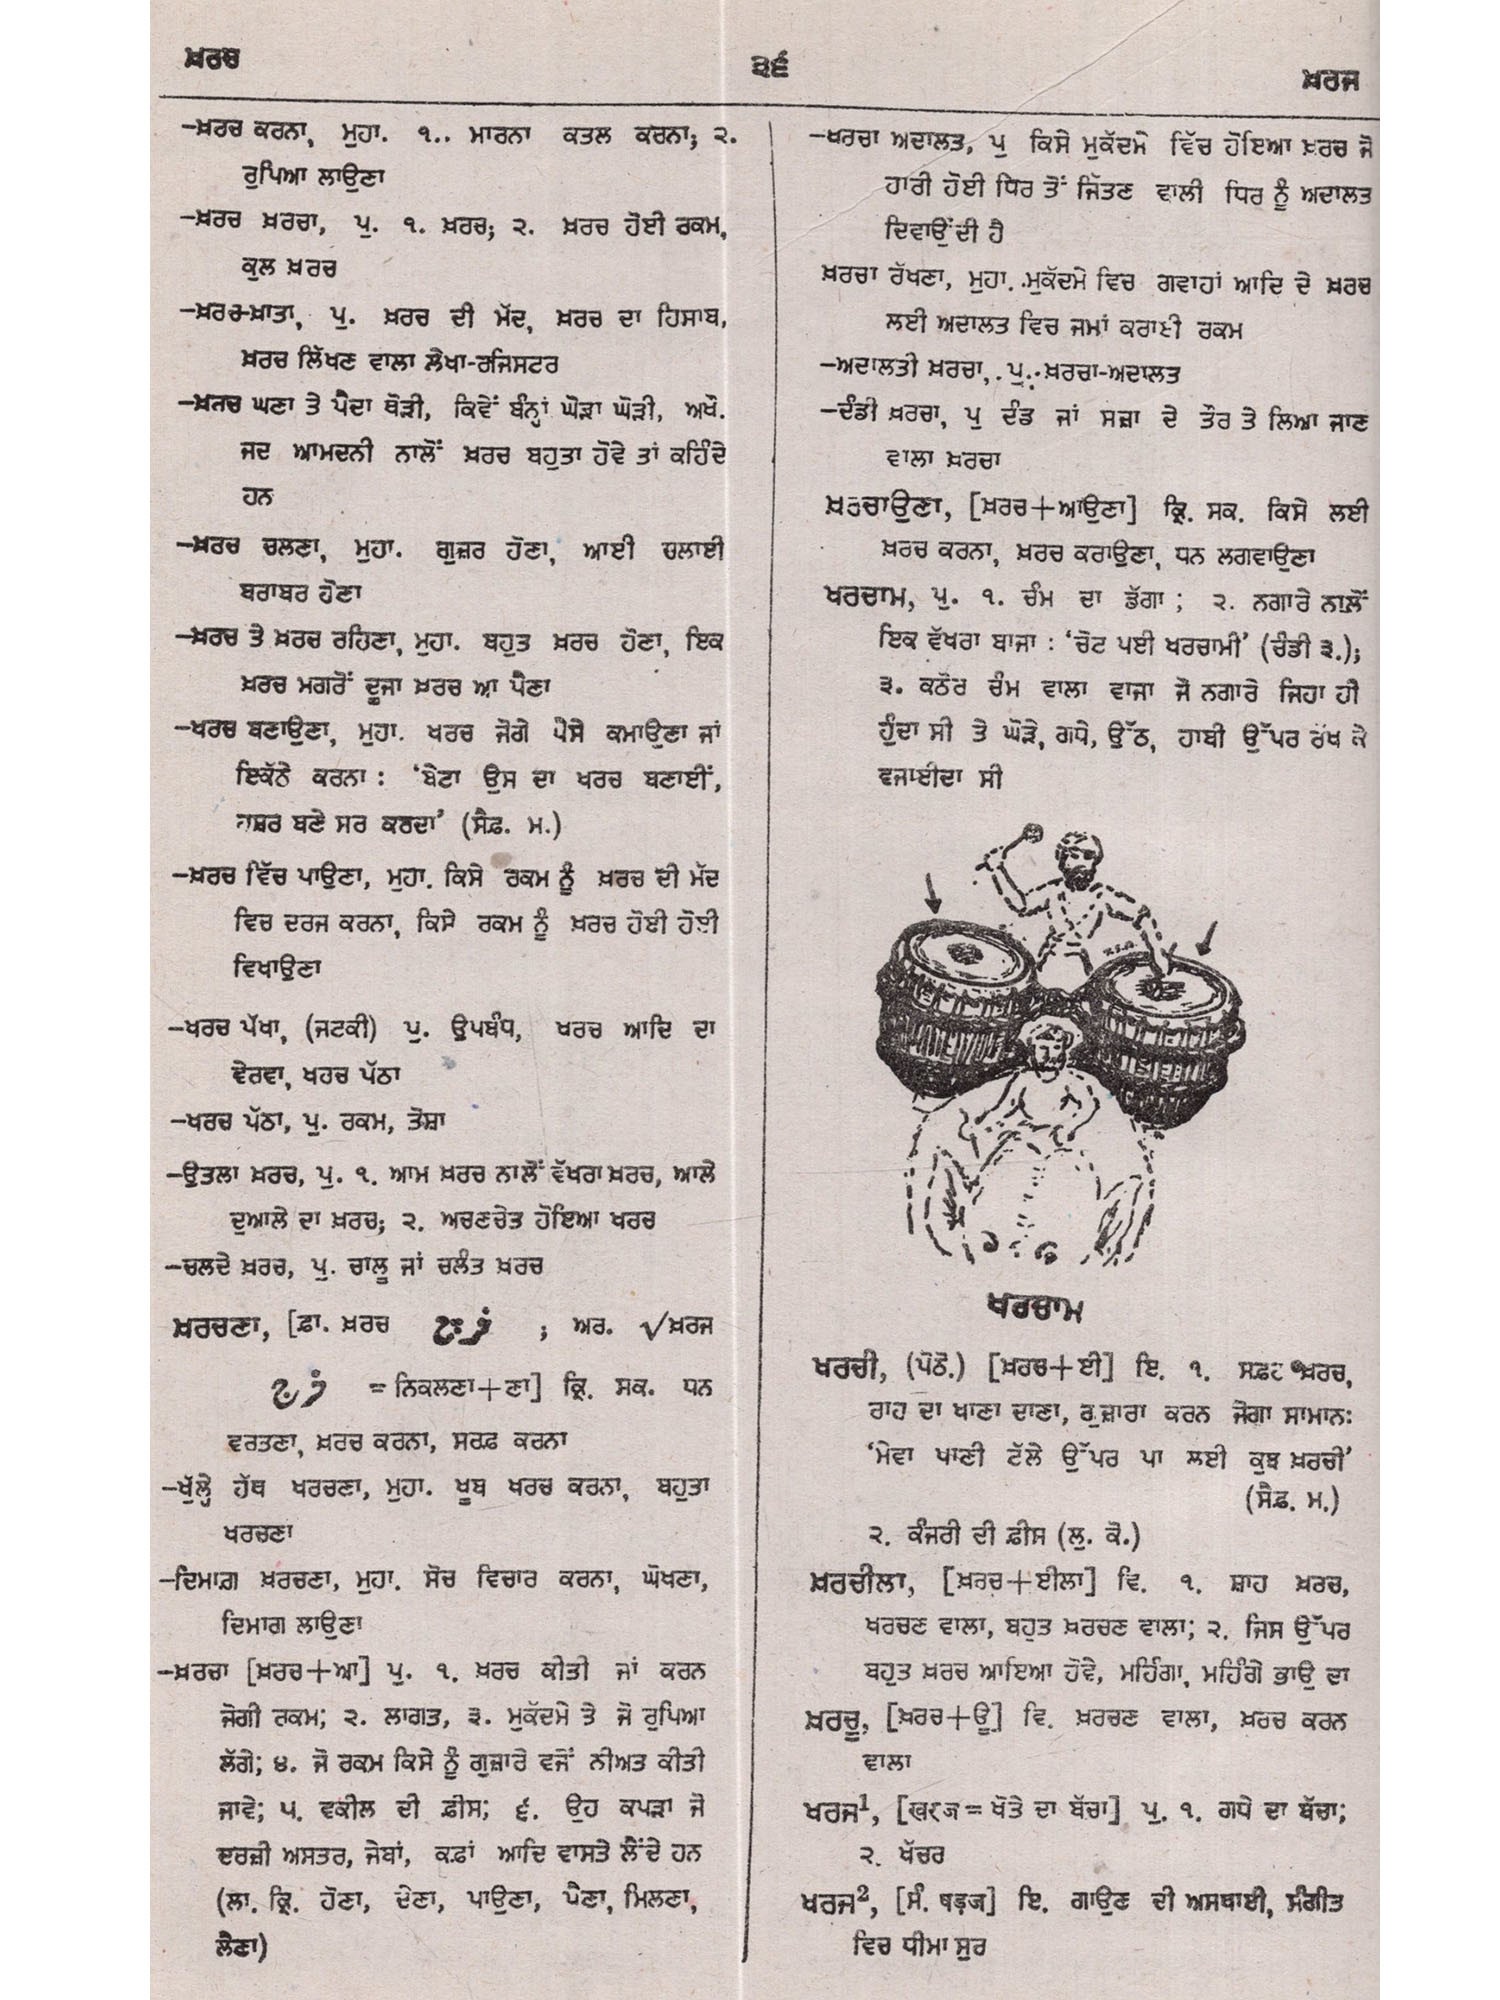 ਖ਼ਰਚ
੩੬
ਖ਼ਰਜ
–ਖ਼ਰਚ ਕਰਨਾ, ਮੁਹਾ. ੧.. ਮਾਰਨਾ ਕਤਲ ਕਰਨਾ; ੨.
ਰੁਪਿਆ ਲਾਉਣਾ
–ਖ਼ਰਚ ਖ਼ਰਚਾ, ਪੁ. ੧. ਖ਼ਰਚ; ੨. ਖ਼ਰਚ ਹੋਈ ਰਕਮ,
ਕੁਲ ਖ਼ਰਚ
–ਖ਼ਰਚ-ਖ਼ਾਤਾ, ਪੁ. ਖ਼ਰਚ ਦੀ ਮੱਦ, ਖ਼ਰਚ ਦਾ ਹਿਸਾਬ,
ਖ਼ਰਚ ਲਿੱਖਣ ਵਾਲਾ ਲੇਖਾ-ਰਜਿਸਟਰ
–ਖ਼ਰਚ ਘਣਾ ਤੇ ਪੈਦਾ ਥੋੜੀ, ਕਿਵੇਂ ਬੰਨ੍ਹਾਂ ਘੋੜਾ ਘੋੜੀ, ਅਖੌ.
ਜਦ ਆਮਦਨੀ ਨਾਲੋਂ ਖ਼ਰਚ ਬਹੁਤਾ ਹੋਵੇ ਤਾਂ ਕਹਿੰਦੇ
ਹਨ
–ਖ਼ਰਚ ਚਲਣਾ, ਮੁਹਾ. ਗੁਜ਼ਰ ਹੋਣਾ, ਆਈ ਚਲਾਈ
ਬਰਾਬਰ ਹੋਣਾ
–ਖ਼ਰਚ ਤੇ ਖ਼ਰਚ ਰਹਿਣਾ, ਮੁਹਾ. ਬਹੁਤ ਖ਼ਰਚ ਹੋਣਾ, ਇਕ
ਖ਼ਰਚ ਮਗਰੋਂ ਦੂਜਾ ਖ਼ਰਚ ਆ ਪੈਣਾ
–ਖਰਚ ਬਣਾਉਣਾ, ਮੁਹਾ. ਖਰਚ ਜੋਗੇ ਪੈਸੇ ਕਮਾਉਣਾ ਜਾਂ
ਇਕੱਠੇ ਕਰਨਾ : ‘ਬੇਟਾ ਉਸ ਦਾ ਖਰਚ ਬਣਾਈਂ,
ਬਣੇ ਸਰ ਕਰਦਾ’ (ਸੈਫ਼. ਮ.)
–ਖ਼ਰਚ ਵਿੱਚ ਪਾਉਣਾ, ਮੁਹਾ. ਕਿਸੇ ਰਕਮ ਨੂੰ ਖ਼ਰਚ ਦੀ ਮੱਦ
ਵਿਚ ਦਰਜ ਕਰਨਾ, ਕਿਸੇ ਰਕਮ ਨੂੰ ਖ਼ਰਚ ਹੋਈ ਹੋਈ
ਵਿਖਾਉਣਾ
–ਖਰਚ ਪੱਖਾ, (ਜਟਕੀ) ਪੁ. ਉਪਬੰਧ, ਖਰਚ ਆਦਿ ਦਾ
ਵੇਰਵਾ, ਖਰਚ ਪੱਠਾ
–ਖਰਚ ਪੱਠਾ, ਪੁ. ਰਕਮ, ਤੋਸ਼ਾ
–ਉਤਲਾ ਖ਼ਰਚ, ਪੁ. ੧. ਆਮ ਖ਼ਰਚ ਨਾਲੋਂ ਵੱਖਰਾ ਖ਼ਰਚ, ਆਲੇ
ਦੁਆਲੇ ਦਾ ਖ਼ਰਚ; ੨. ਅਚਣਚੇਤ ਹੋਇਆ ਖਰਚ
–ਚਲਦੇ ਖ਼ਰਚ, ਪੁ. ਚਾਲੂ ਜਾਂ ਚਲੰਤ ਖ਼ਰਚ
ਖ਼ਰਚਣਾ, [ਫ਼ਾ. ਖ਼ਰਚ خرچ ; ਅਰ. √ਖ਼ਰਜ
خرج = ਨਿਕਲਣਾ+ਣਾ] ਕ੍ਰਿ. ਸਕ. ਧਨ
ਵਰਤਣਾ, ਖ਼ਰਚ ਕਰਨਾ, ਸਰਫ਼ ਕਰਨਾ
–ਖੁੱਲ੍ਹੇ ਹੱਥ ਖਰਚਣਾ, ਮੁਹਾ. ਖੂਬ ਖਰਚ ਕਰਨਾ, ਬਹੁਤਾ
ਖਰਚਣਾ
–ਦਿਮਾਗ਼ ਖ਼ਰਚਣਾ, ਮੁਹਾ. ਸੋਚ ਵਿਚਾਰ ਕਰਨਾ, ਘੋਖਣਾ,
ਦਿਮਾਗ ਲਾਉਣਾ
–ਖ਼ਰਚਾ [ਖ਼ਰਚ+ਆ] ਪੁ. ੧. ਖ਼ਰਚ ਕੀਤੀ ਜਾਂ ਕਰਨ
ਜੋਗੀ ਰਕਮ; ੨. ਲਾਗਤ, ੩. ਮੁਕੱਦਮੇ ਤੇ ਜੋ ਰੁਪਿਆ
ਲੱਗੇ; ੪. ਜੋ ਰਕਮ ਕਿਸੇ ਨੂੰ ਗੁਜ਼ਾਰੇ ਵਜੋਂ ਨੀਅਤ ਕੀਤੀ
ਜਾਵੇ; ੫. ਵਕੀਲ ਦੀ ਫ਼ੀਸ; ੬. ਉਹ ਕਪੜਾ ਜੋ
ਦਰਜ਼ੀ ਅਸਤਰ, ਜੇਬਾਂ, ਕਫ਼ਾਂ ਆਦਿ ਵਾਸਤੇ ਲੈਂਦੇ ਹਨ
(ਲਾ. ਕ੍ਰਿ. ਹੋਣਾ, ਦੇਣਾ, ਪਾਉਣਾ, ਪੈਣਾ, ਮਿਲਣਾ,
ਲੈਣਾ)
–ਖਰਚਾ ਅਦਾਲਤ, ਪੁ ਕਿਸੇ ਮੁਕੱਦਮੇ ਵਿੱਚ ਹੋਇਆ ਖ਼ਰਚ ਜੋ
ਹਾਰੀ ਹੋਈ ਧਿਰ ਤੋਂ ਜਿੱਤਣ ਵਾਲੀ ਧਿਰ ਨੂੰ ਅਦਾਲਤ
ਦਿਵਾਉਂਦੀ ਹੈ
ਖ਼ਰਚਾ ਰੱਖਣਾ, ਮੁਹਾ. ਮੁਕੱਦਮੇ ਵਿਚ ਗਵਾਹਾਂ ਆਦਿ ਦੇ ਖ਼ਰਚ
ਲਈ ਅਦਾਲਤ ਵਿਚ ਜਮਾਂ ਕਰਾਈ ਰਕਮ
–ਅਦਾਲਤੀ ਖ਼ਰਚਾ, ਪੁ. ਖ਼ਰਚਾ-ਅਦਾਲਤ
–ਦੰਡੀ ਖ਼ਰਚਾ, ਪੁ ਦੰਡ ਜਾਂ ਸਜ਼ਾ ਦੇ ਤੌਰ ਤੇ ਲਿਆ ਜਾਣ
ਵਾਲਾ ਖ਼ਰਚਾ
ਖ਼ਰਚਾਉਣਾ, [ਖ਼ਰਚ+ਆਉਣਾ] ਕ੍ਰਿ. ਸਕ. ਕਿਸੇ ਲਈ
ਖ਼ਰਚ ਕਰਨਾ, ਖ਼ਰਚ ਕਰਾਉਣਾ, ਧਨ ਲਗਵਾਉਣਾ
ਖਰਚਾਮ, ਪੁ. ੧. ਚੰਮ ਦਾ ਡੱਗਾ ; ੨. ਨਗਾਰੇ ਨਾਲੋਂ
ਇਕ ਵੱਖਰਾ ਬਾਜਾ : ‘ਚੋਟ ਪਈ ਖਰਚਾਮੀ’ (ਚੰਡੀ ੩.);
੩. ਕਠੋਰ ਚੰਮ ਵਾਲਾ ਵਾਜਾ ਜੋ ਨਗਾਰੇ ਜਿਹਾ ਹੀ
ਹੁੰਦਾ ਸੀ ਤੇ ਘੋੜੇ, ਗਧੇ, ਉੱਠ, ਹਾਥੀ ਉੱਪਰ ਰੱਖ ਕੇ
ਵਜਾਈਦਾ ਸੀ
ਖਰਚਾਮ
ਖਰਚੀ, (ਪੋਠੋ.) [ਖ਼ਰਚ+ਈ] ਇ. ੧. ਸਫ਼ਰ ਖ਼ਰਚ,
ਰਾਹ ਦਾ ਖਾਣਾ ਦਾਣਾ, ਗੁਜ਼ਾਰਾ ਕਰਨ ਜੋਗਾ ਸਾਮਾਨ:
‘ਮੇਵਾ ਖਾਣੀ ਟੱਲੇ ਉੱਪਰ ਪਾ ਲਈ ਕੁਝ ਖ਼ਰਚੀ’
(ਸੈਫ਼. ਮ.)
੨. ਕੰਜਰੀ ਦੀ ਫ਼ੀਸ (ਲੁ. ਕੋ.)
ਖ਼ਰਚੀਲਾ, [ਖ਼ਰਚ+ਈਲਾ] ਵਿ. ੧. ਸ਼ਾਹ ਖ਼ਰਚ,
ਖਰਚਣ ਵਾਲਾ, ਬਹੁਤ ਖ਼ਰਚਣ ਵਾਲਾ; ੨. ਜਿਸ ਉੱਪਰ
ਬਹੁਤ ਖ਼ਰਚ ਆਇਆ ਹੋਵੇ, ਮਹਿੰਗਾ, ਮਹਿੰਗੇ ਭਾਉ ਦਾ
ਖ਼ਰਚੂ, [ਖ਼ਰਚ+ਊ] ਵਿ. ਖ਼ਰਚਣ ਵਾਲਾ, ਖ਼ਰਚ ਕਰਨ
ਵਾਲਾ
ਖਰਜ¹, [खरज = ਖੋਤੇ ਦਾ ਬੱਚਾ] ਪੁ. ੧. ਗਧੇ ਦਾ ਬੱਚਾ;
੨. ਖੱਚਰ
ਖਰਜ², [ਸੰ. षड्ज] ਇ. ਗਾਉਣ ਦੀ ਅਸਥਾਈ, ਸੰਗੀਤ
ਵਿਚ ਧੀਮਾ ਸੁਰ